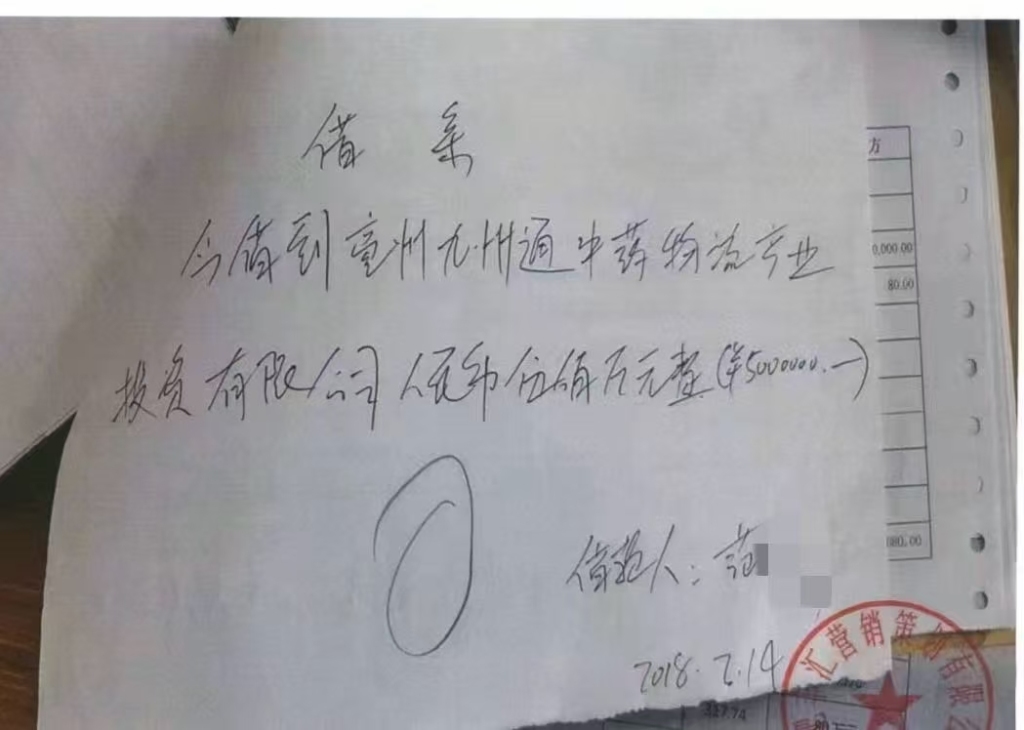 借条
今借到亳州九州通中药物流产业
投资有限公司人民币伍佰万元整(¥5000000.一)
借款人:范
2018.2.14
方
0,000.00
80.00
080.00
汇营销策划有限公
327.74